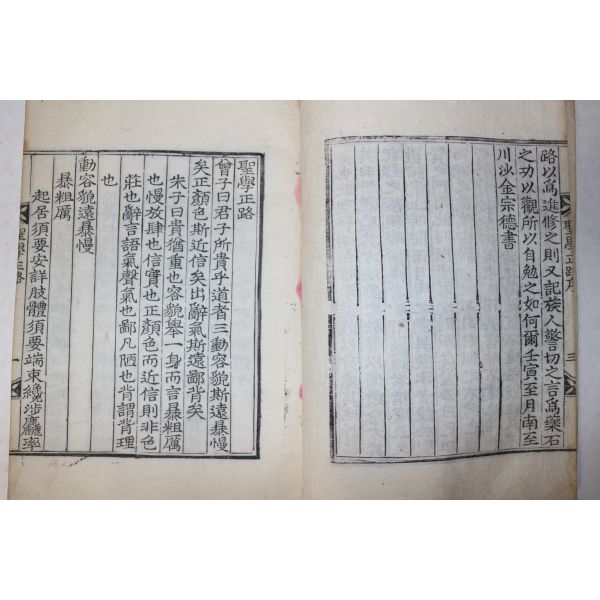 聖學正路序
三
路以爲進修之則又記族人警切之言爲藥石
之功以觀所以自勉之如何爾壬寅至月南至
川沙金宗德書
聖學正路
曾子曰君子所貴乎道者三動容貌斯遠暴慢
矣正顏色斯近信矣出辭氣斯遠鄙背矣
朱子曰貴猶重也容貌舉一身而言暴粗厲
也慢放肆也信實也正顏色而近信則非色
莊也辭言語氣聲氣也鄙凡陋也背謂背理
也
動容貌遠暴慢
暴粗厲
起居須要安詳肢體須要端東纔涉麤率
聖學正路
一